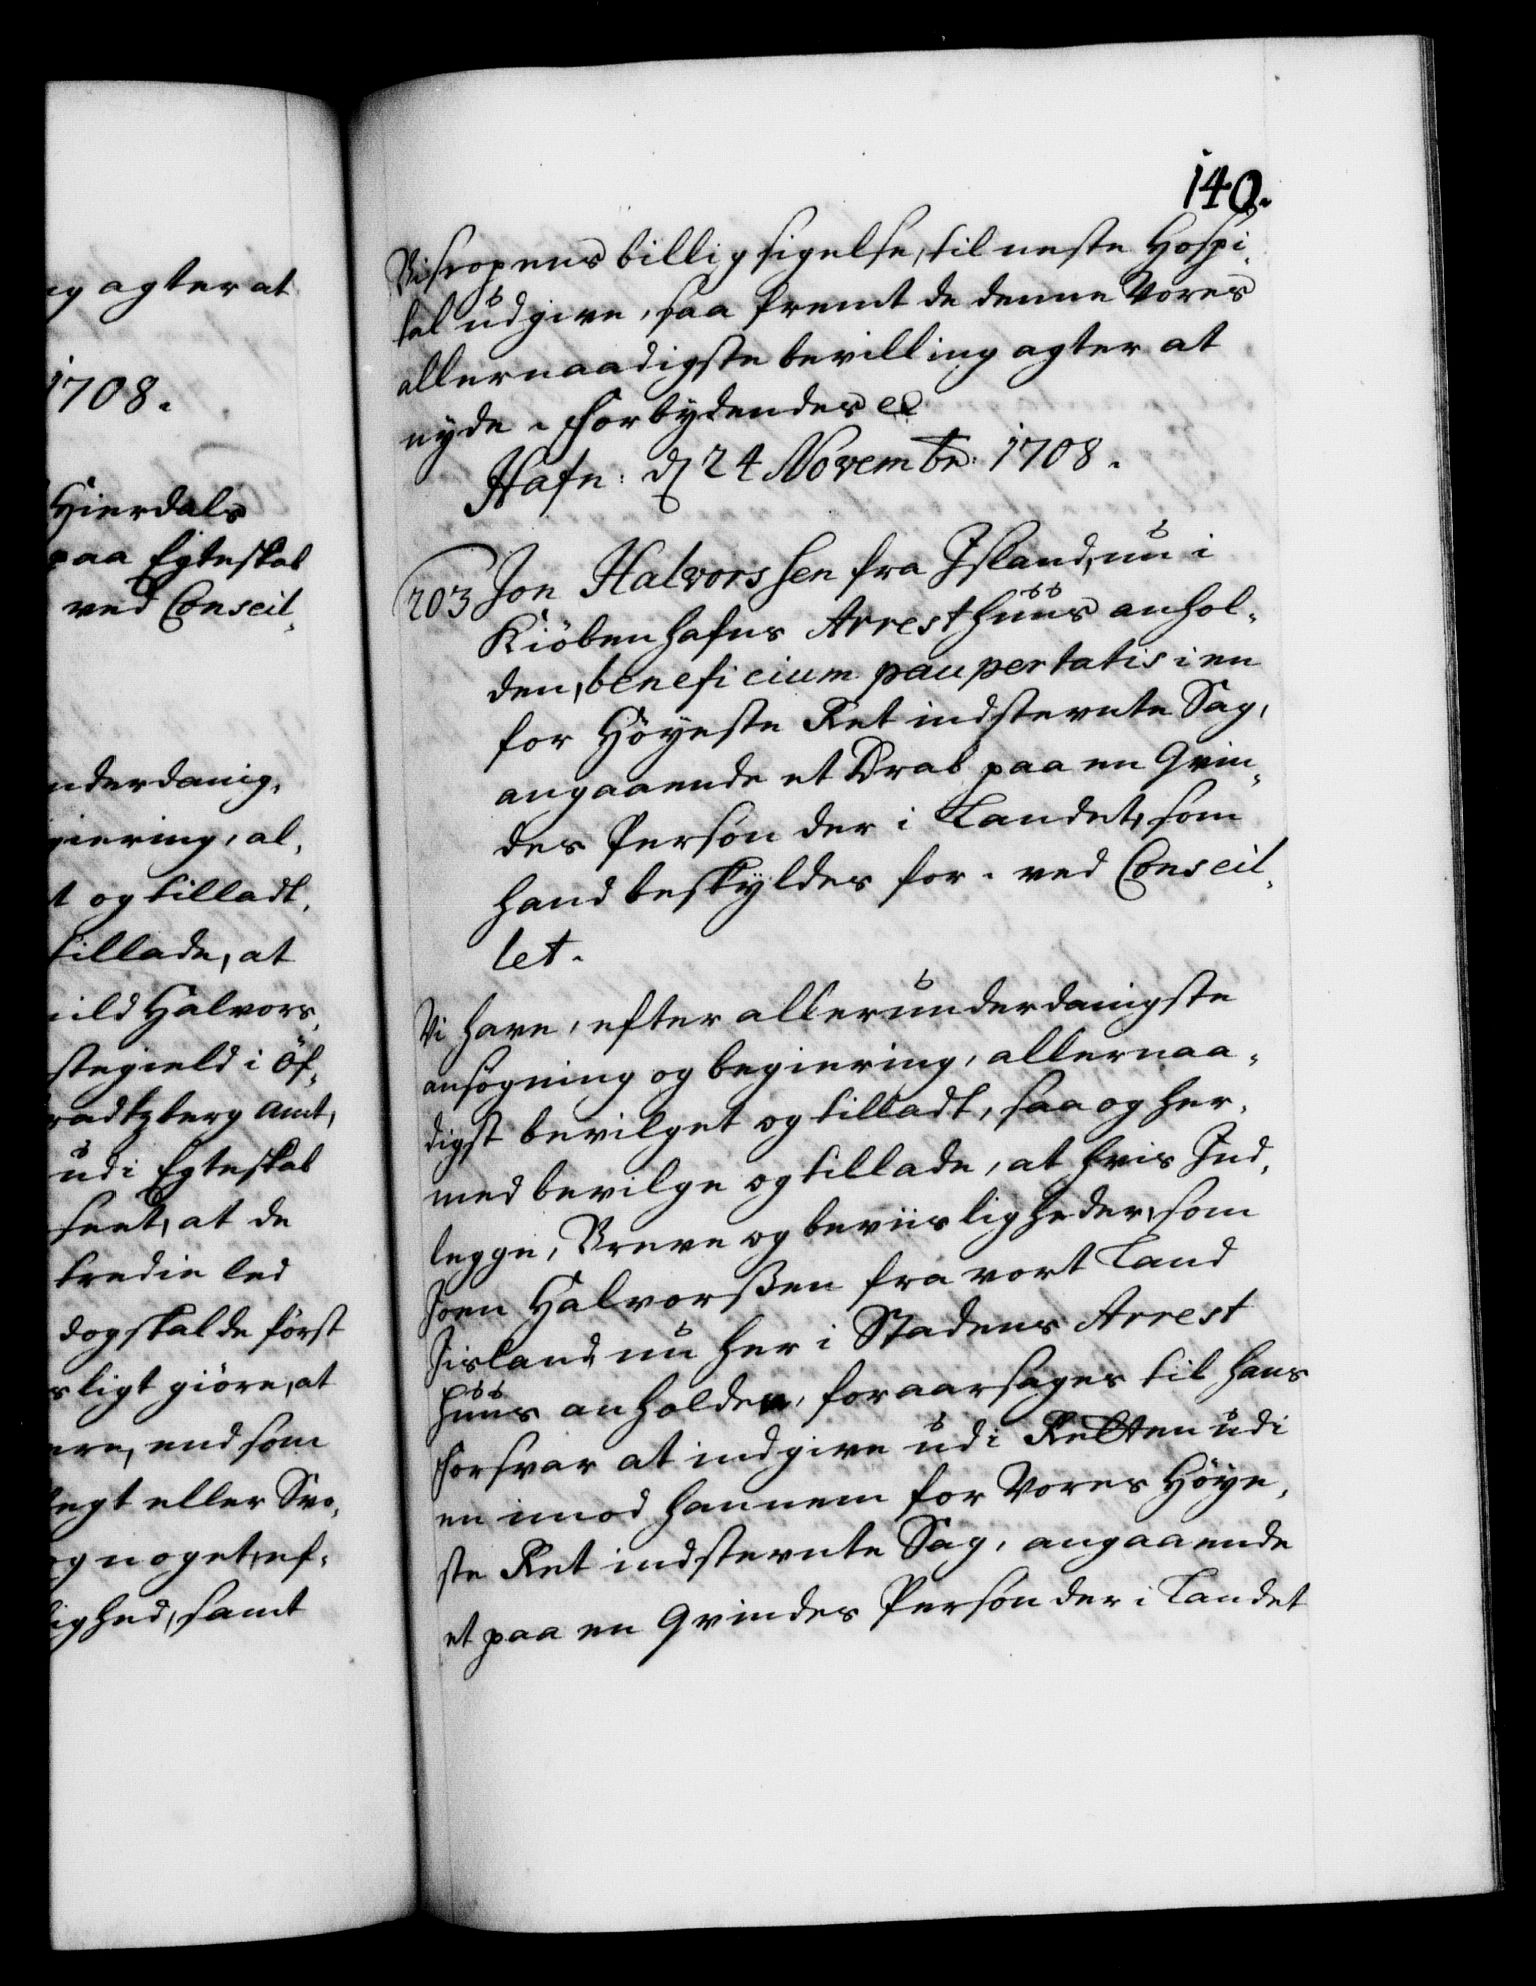 ig agter at
1708.
Hierdals
paa Egteskab
ved Conseil¬
nderdanig¬
giering, al¬
t og tilladt,
tillade, at
ild Halvors¬
stegield i Öf¬
radtzberg Amt,
udi Egteskab
seet, at de
tredie led
dog skal de först
sligt giöre, at
ere, end som
egt eller Svo¬
og noget, ef¬
lighed, samt
140.
Biscopens billig sigelse, til neste Hospi¬
tal udgive, saa fremt de denne Vores
allernaadigste bevilling agter at
nyde. Forbydendes etc
Hafn: d 24 Novembr: 1708.
203 Jon Halvorssen fra Island, nu i
Kiöbenhafns Arresthuus anhol¬
den, beneficium paupertatis i en
for Höyeste Ret indstevnte Sag,
angaaende et Drab paa en Qvin¬
des Person der i Landet, som
hand beskyldes for. ved Conseil¬
let.
Vi have, efter allerunderdanigste
ansögning og begiering, allernaa¬
digst bevilget og tilladt, saa og her¬
med bevilge og tillade, at hvis Ind¬
legge, Breve og beviisligheder, som
Joen Halvorßen fra vort Land
Jisland, nu her i Stadens Arrest
huus anholden, foraarsages til hans
forsvar at indgive udi Retten udi
en imod hannem for Vores Höye¬
ste Ret indstevnte Sag, angaaende
et paa en Qvindes Person der i Landet